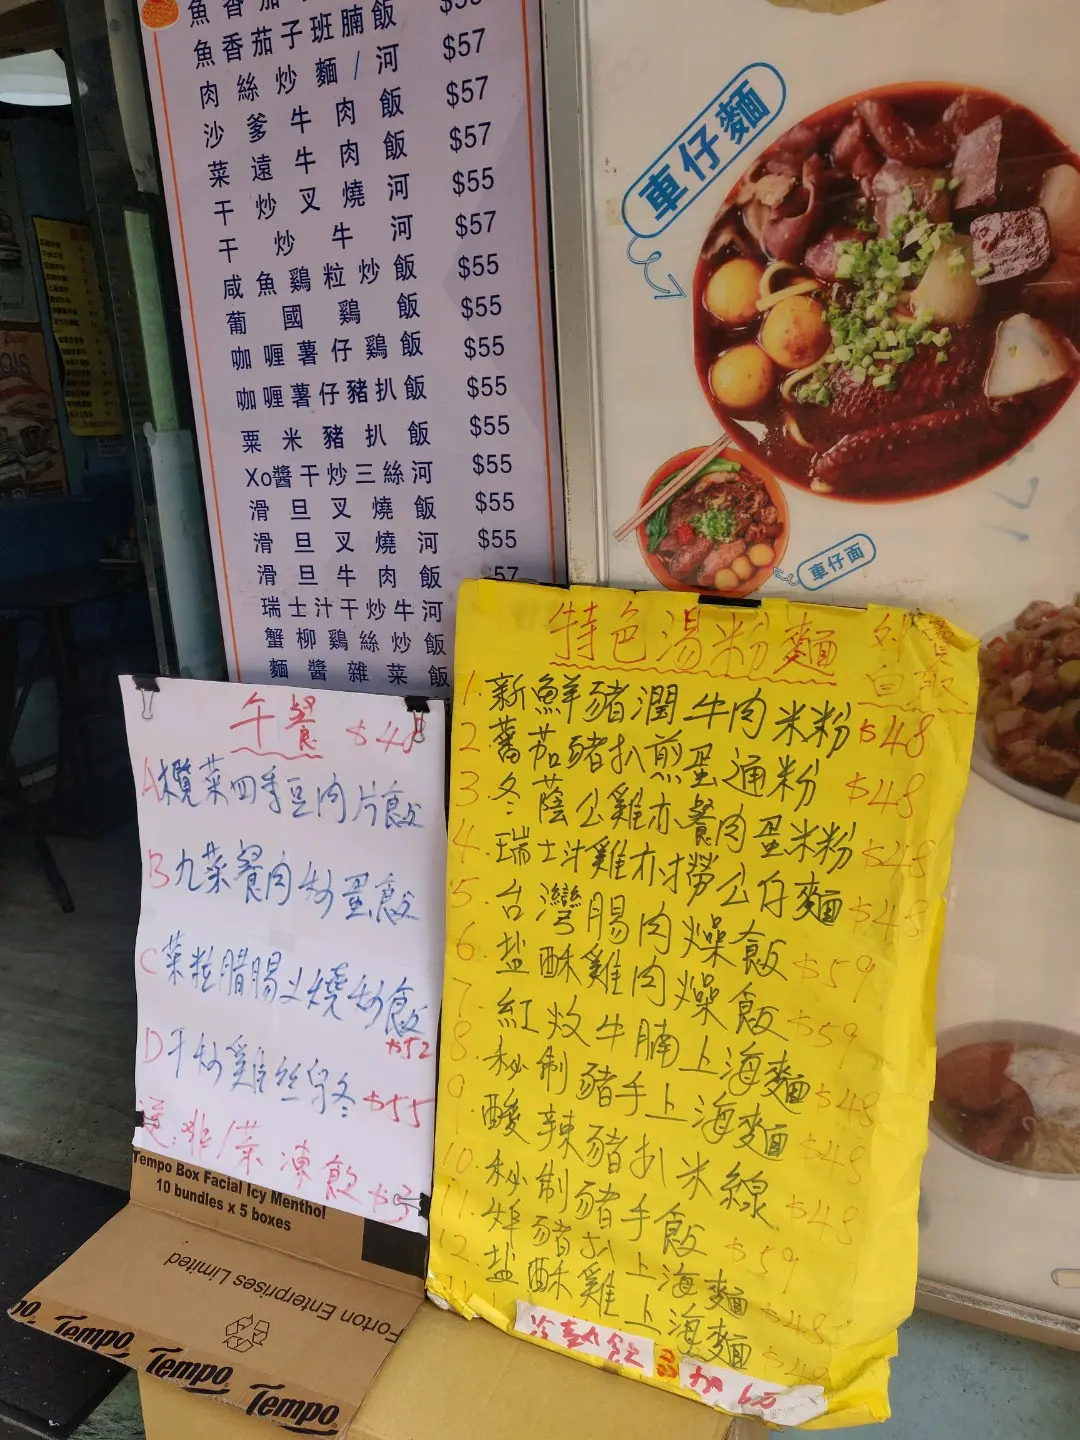 魚香茄子班腩飯 $57
肉絲炒麵/河 $57
沙爹牛肉飯 $57
菜遠牛肉飯 $55
干炒叉燒河 $57
干炒牛河 $55
咸魚鷄粒炒飯 $55
葡國鷄飯 $55
咖喱薯仔鷄飯 $55
咖喱薯仔豬扒飯 $55
粟米豬扒飯 $55
Xo醬干炒三絲河 $55
滑旦叉燒飯 $55
滑旦叉燒河
滑旦牛肉飯
瑞士汁干炒牛河
蟹柳鷄絲炒飯
麵醬雜菜飯
車仔麵
車仔面
午餐 $48
A欖菜四季豆肉片飯
B九菜餐肉炒蛋飯
C菜粒腊腸叉燒炒飯 $52
D干炒雞絲 $55
送:啡/茶 凍飲 $3
特色湯粉麵 外賣自取
1.新鮮豬潤牛肉米粉 $48
2.蕃茄豬扒煎蛋通粉 $48
3.冬蔭公雞亦餐肉蛋米粉 $48
4.瑞士汁雞亦撈公仔麵 $48
5.台灣腸肉燥飯 $59
6.盐酥雞肉燥飯 $59
7.紅炆牛腩上海麵 $48
8.秘制豬手上海麵 $48
9.酸辣豬扒米線 $48
10.秘制豬手飯 $59
11.炸豬扒上海麵 $48
12.盐酥雞上海麵 $48
Tempo Box Facial Icy Menthol
10 bundles x 5 boxes
Forton Enterprises Limited
Tempo
Tempo
Tempo